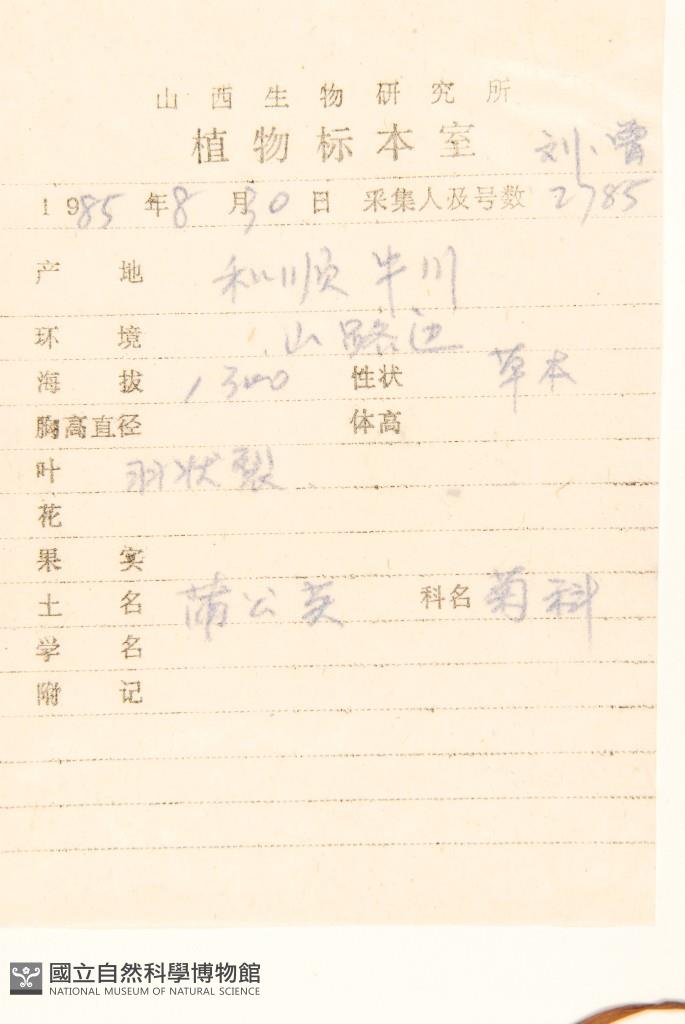 山西生物研究所
植物标本室 刘、曾
1985年8月30日 采集人及号数 2785
产地 和顺牛川
环境 山路边
海拔 1300 性状 草本
胸高直径 体高
叶 羽状裂
花
果实
土名 蒲公英 科名 菊科
学名
附记
國立自然科學博物館
NATIONAL MUSEUM OF NATURAL SCIENCE